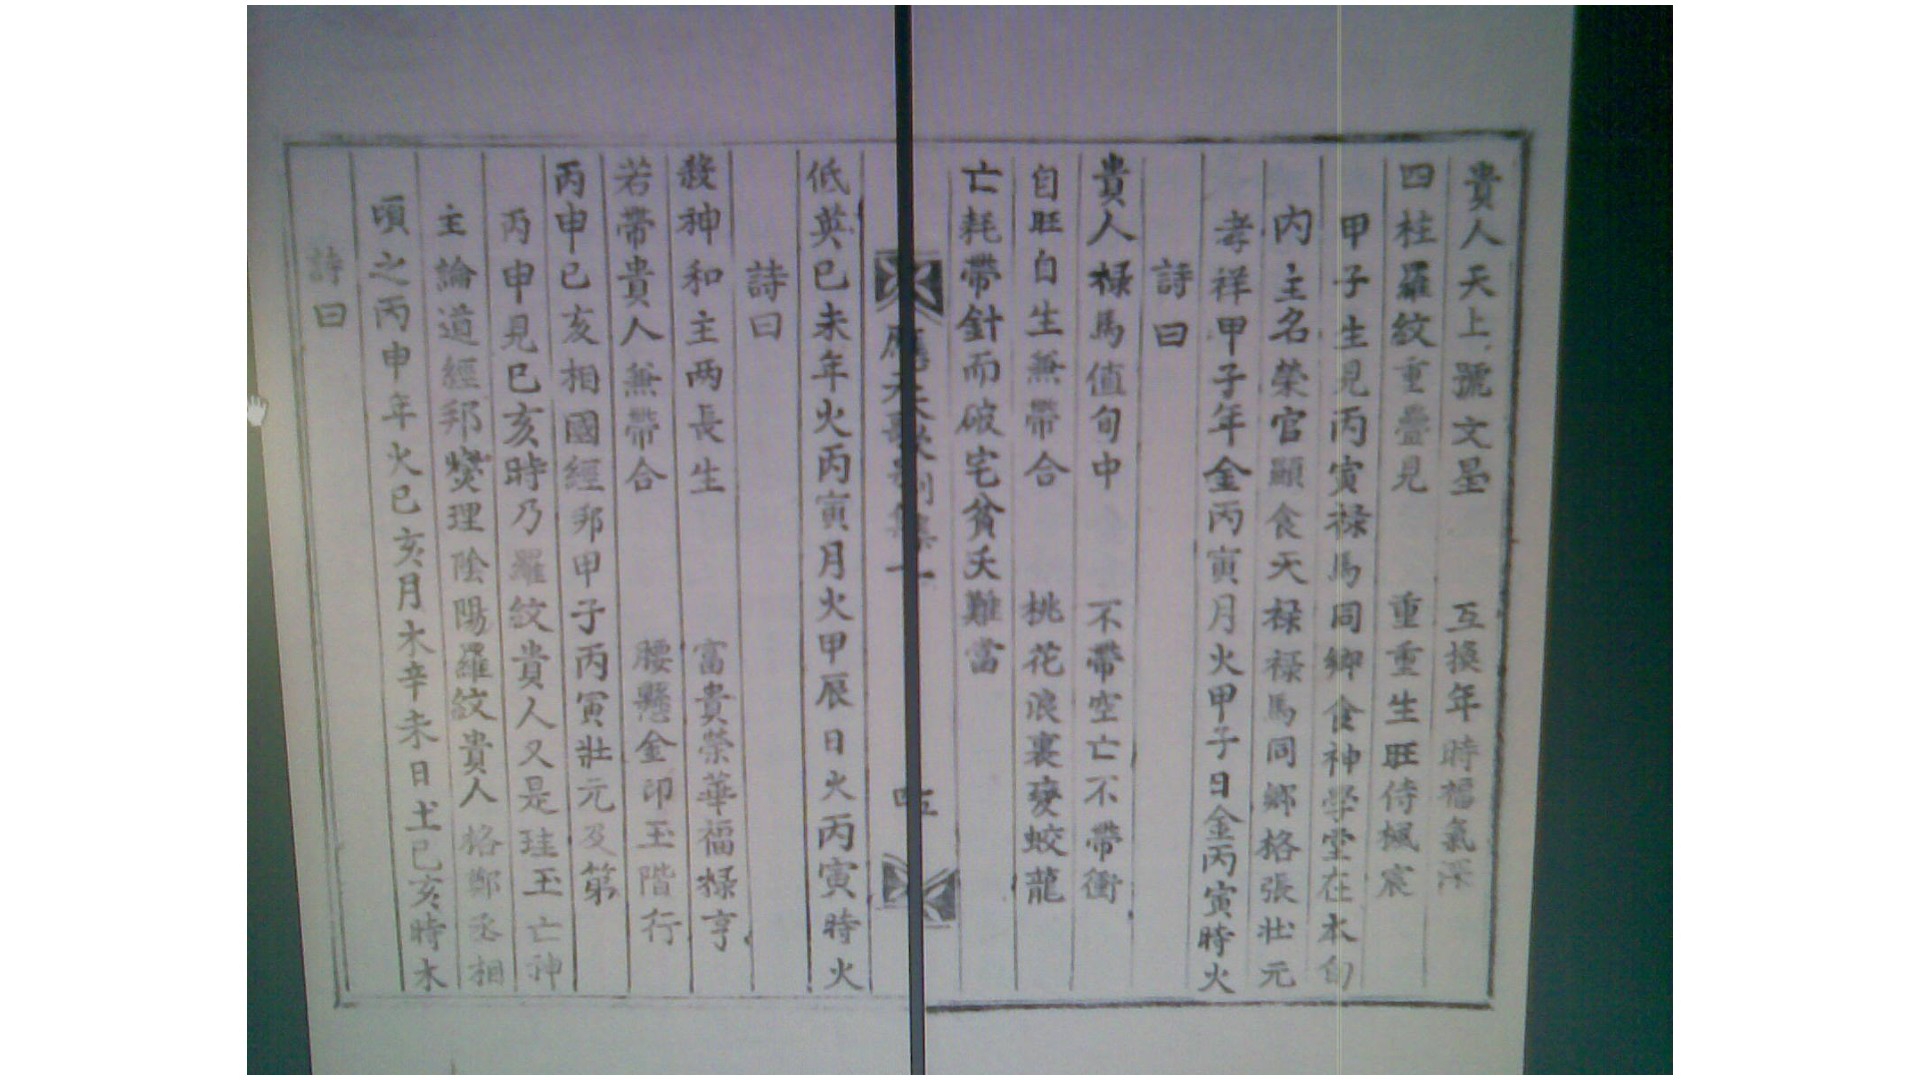 貴人天上號文星 互換年時福氣深
四柱羅紋重疊見 重重生旺侍楓宸
甲子生見丙寅祿馬同鄉食神學堂在本旬
內主名榮官顯食天祿祿馬同鄉格張壯元
孝祥甲子年金丙寅月火甲子日金丙寅時火
詩曰
貴人祿馬值旬中 不帶空亡不帶衝
自旺自生兼帶合 桃花浪裏變蛟龍
亡耗帶針而破宅貧夭難當
應天歌別集一
四五
低英已未年火丙寅月火甲辰日火丙寅時火
詩曰
殺神和主两長生 富貴榮華福祿亨
若帶貴人兼帶合 腰懸金印玉階行
丙申已亥相國經邦甲子丙寅壯元及第
丙申見巳亥時乃羅紋貴人又是珪玉亡神
主論道經邦爕理陰陽羅紋貴人格鄭丞相
頃之丙申年火巳亥月木辛未日土已亥時木
詩曰